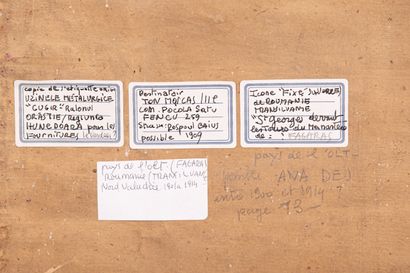 copie de l'etiquette
UZINELE METALURGICE
"CUGIR" Raionul
ORASTIE/regiunea
HUNEDOARA pour les
FOURNITURES
Destinatair
ION MOICAS/IIIe
COM. POCOLA Satu
FENCU 259
possible 1909
Icone "Fixé" sous VERRE
de ROUMANIE
TRANSILVANIE
"St Georges
de: ? FAGARAS
pays de l'OLT / (FAGARAS)
Roumanie / (TRANSILVANIE
Nord Valachie 1901 a 1914 ?
pays de l'OLT
ANA DEJ
entre 1900 et 1914 ?
page 73-